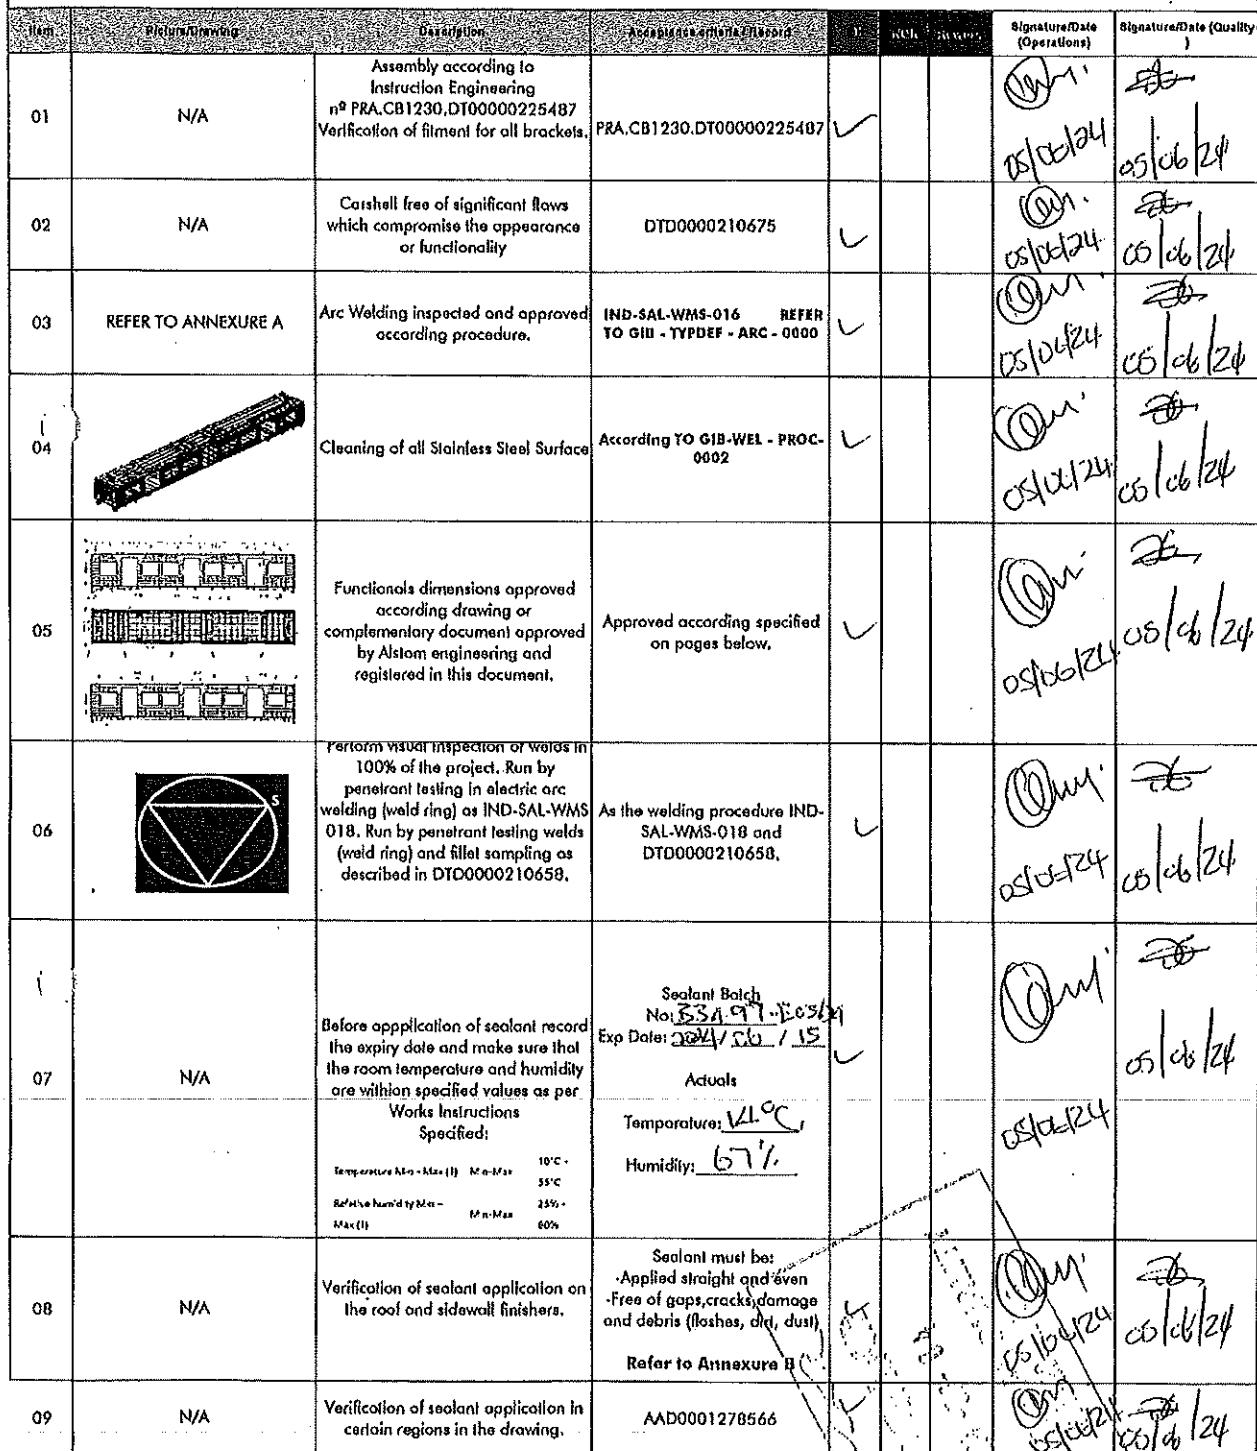 Item Picture/Drawing Description Acceptance criteria / Record Signature/Date (Operations) Signature/Date (Quality )
01 N/A
Assembly according to
Instruction Engineering
nº PRA.CB1230.DT00000225487
Verification of fitment for all brackets.
PRA.CB1230.DT00000225487
05/06/24
05/06/24
02 N/A
Carshell free of significant flaws
which compromise the appearance
or functionality
DTD0000210675
05/06/24
05/06/24
03 REFER TO ANNEXURE A
Arc Welding inspected and approved
according procedure.
IND-SAL-WMS-016 REFER
TO GIB - TYPDEF - ARC - 0000
05/06/24
05/06/24
04
Cleaning of all Stainless Steel Surface
According TO GIB-WEL - PROC-
0002
05/06/24
05/06/24
05
Functionals dimensions approved
according drawing or
complementary document approved
by Alstom engineering and
registered in this document.
Approved according specified
on pages below.
05/06/24
05/06/24
06
S
Perform visual inspection of welds in
100% of the project. Run by
penetrant testing in electric arc
welding (weld ring) as IND-SAL-WMS
018. Run by penetrant testing welds
(weld ring) and fillet sampling as
described in DTD0000210658.
As the welding procedure IND-
SAL-WMS-018 and
DTD0000210658.
05/06/24
05/06/24
07 N/A
Before appplication of sealant record
the expiry date and make sure that
the room temperature and humidity
are withion specified values as per
Works Instructions
Specified:
Temperature Min - Max (I) Min-Max 10°C -
35°C
Relative humidity Min -
Max (I) Min-Max 25% -
60%
Sealant Batch
No:
Exp Date: 2024/06/15
Actuals
Temperature:
Humidity: 67%
05/06/24
05/06/24
08 N/A
Verification of sealant application on
the roof and sidewall finishers.
Sealant must be:
-Applied straight and even
-Free of gaps,cracks,damage
and debris (flashes, dirt, dust)
Refer to Annexure B
05/06/24
05/06/24
09 N/A
Verification of sealant application in
certain regions in the drawing.
AAD0001278566
05/06/24
05/06/24